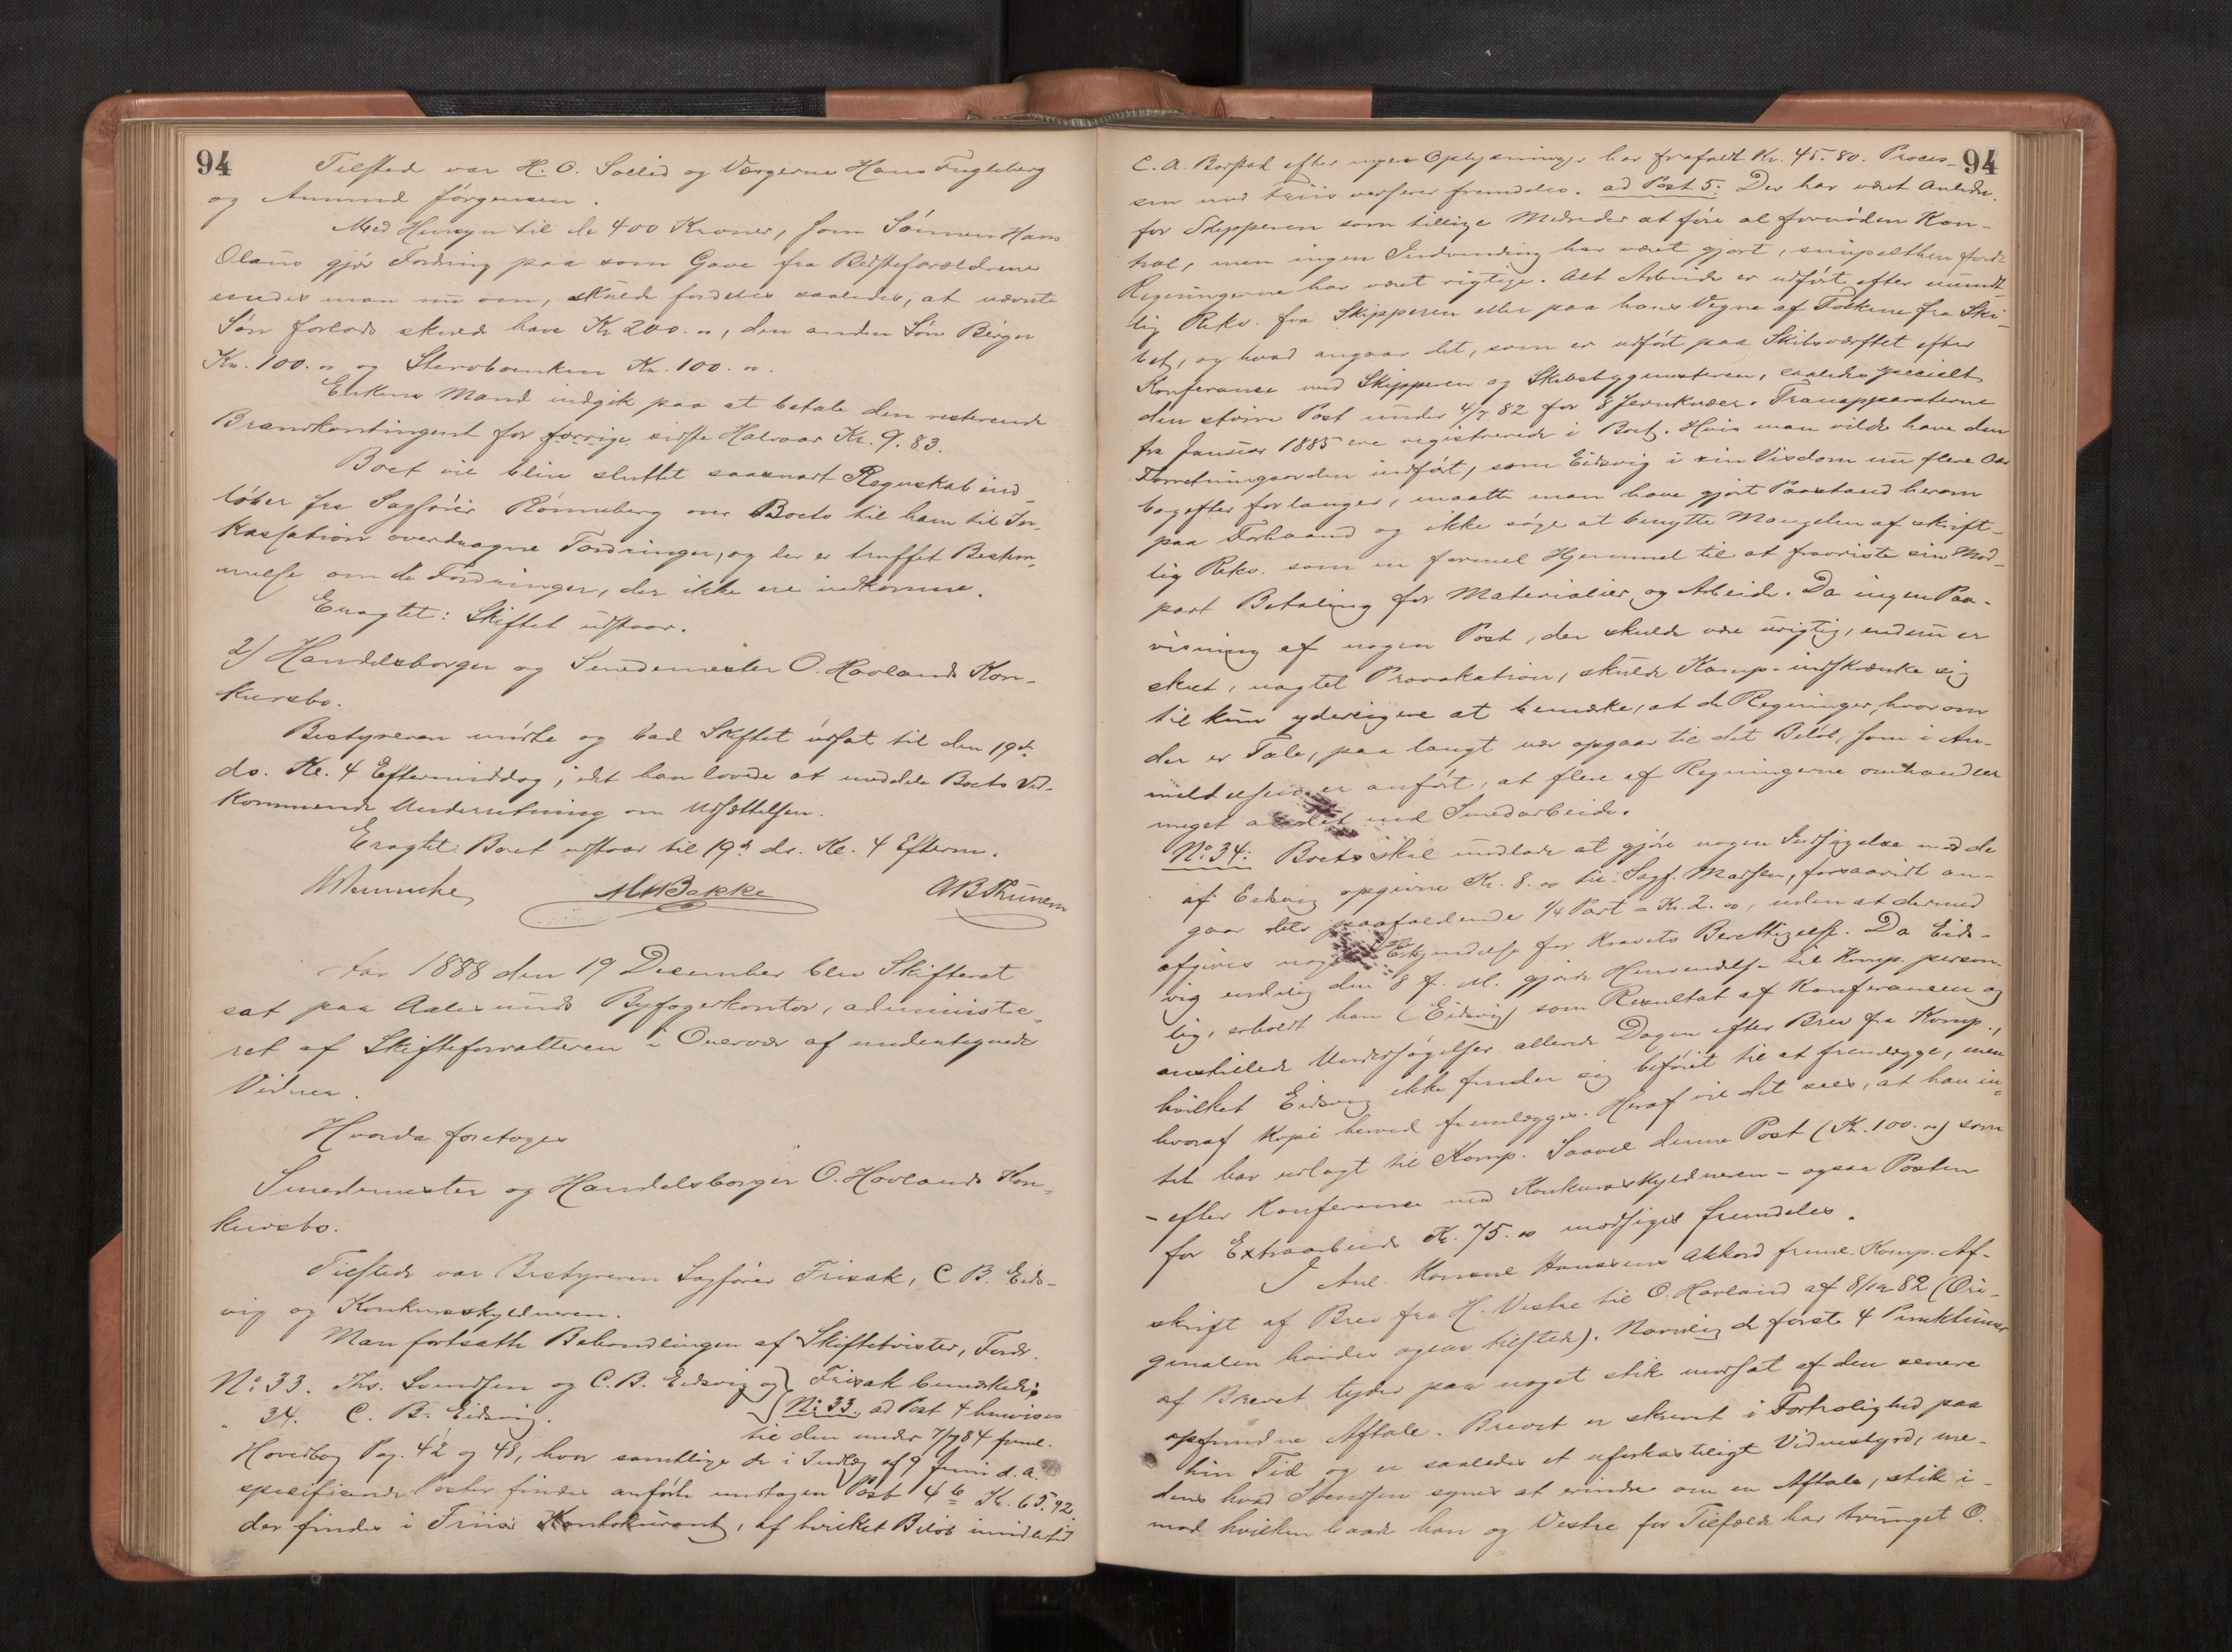 94
Tilstede var H. O. Sollid og Værgerne Hans Fugleberg
og Amund Jørgensen.
Med Hensyn til de 400 Kroner, som Sønnen Hans
Olaus gjør Fordring paa som Gave fra Bedsteforældrene
enedes man nu om, skulde fordeles saaledes, at nævnte
Søn forlods skulde have Kr 200.00, den anden Søn Birger
Kr. 100.00 og Stervboenken Kr. 100.00.
Enkens Mand indgik paa at betale den resterende
Brandkontingent for forrige sidste Halvaar Kr. 9.83.
Boet vil blive sluttet saasnart Regnskab ind-
løber fra Sagfører Rønneberg over Boets til ham til In-
kassation overdragne Fordringer, og der er truffet Bestem-
melse om de Fordringer, der ikke ere indkomne.
Eragtet: Skiftet udstaar.
2) Handelsborger og Smedemester O. Hovlands Kon-
kursbo.
Bestyreren mødte og bad Skiftet udsat til den 19de
ds. Kl. 4 Eftermiddag, idet han lovede at meddele Boets Ved-
kommende Underretning om Udsættelsen.
Eragtet: Boet udstaar til 19de ds. Kl. 4 Efterm.
MBakke ABThunem
Aar 1888 den 19 December blev Skifteret
sat paa Aalesunds Byfogerkontor, administre-
ret af Skifteforvalteren i Overvær af undertegnede
Vidner.
Hvorda foretoges
Smedemester og Handelsborger O. Hovlands Kon-
kursbo.
Tilstede var Bestyreren Sagfører Frisak, C. B. Eids-
vig og Konkursskyldneren.
Man fortsatte Behandlingen af Skiftetvister, Fordr.
No 33. Ths. Svendsen og C. B. Eidsvig og } Frisak bemærkede:
" 34. C. B. Eidsvig. No 33. ad Post 4 henvises
til den under 7/7 84 freml.
Hovedbog Pag. 42 og 48, hvor samtlige de i Indlæg af 9 Juni d. A.
specificerede Poster findes anførte undtagen Post 4 b Kr. 65.92.
der findes i Friis Kontokurant, af hvilket Beløb imidlertid
94
C. A. Borstad efter nyere Oplysninger har frafaldt Kr. 45.80. Proces-
sen med Friis verserer fremdeles. ad Post 5: Der har været Anledn.
for Skipperen som tillige Medreder at føre al fornøden Kon-
trol, men ingen Indvending har været gjort, simpelthen fordi
Regningerne har været rigtige. Alt Arbeide er udført efter mundt-
lig Rekv. fra Skipperen eller paa hans Vegne af Folkene fra Ski-
bet, og hvad angaar det, som er udført paa Skibsværftet efter
Konferance med Skipperen og Skibsbygmesteren, saaledes specielt
den større Post under 4/7 82 for 8 Jernknæer. Tranapparaterne
fra Januar 1885 ere registrerede i Boet. Hvis man vilde have den
Forretningsorden indført, som Eidsvig i sin Visdom nu flere Aar
bagefter forlanger, maatte man have gjort Paastand herom
paa Forhaand og ikke søge at benytte Mangelen af skrift-
lig Rekv. som en formel Hjemmel til at fravriste sin Mod-
part Betaling for Materialier og Arbeide. Da ingen Paa-
visning af nogen Post, der skulde være urigtig, endnu er
sket, uagtet Provokation, skulde Komp. indskrænke sig
til kun yderligere at bemærke, at de Regninger, hvorom
der er Tale, paa langt nær opgaar til det Beløb, som i An-
meldelsen er anført, at flere af Regningerne omhandler
meget andet end Smedarbeide.
No 34: Boets skal undlade at gjøre nogen Indsigelse mod de
af Eidsvig opgivne Kr. 8.00 til Sagf. Madsen, forsaavidt an-
gaar dets paafaldende 1/4 Part = Kr. 2.00, uden at dermed
afgives nogen Erkjendelse for Kravets Berettigelse. Da Eids-
vig endelig den 8 f. M. gjorde Henvendelse til Komp. person-
lig, erholdt han (Eidsvig) som Resultat af Konferancen og
anstillede Undersøgelser allerede Dagen efter Brev fra Komp.,
hvilket Eidsvig ikke finder sig beføiet til at fremlægge, men
hvoraf Kopi herved fremlægges. Heraf vil det sees, at han in-
tet har udlagt til Komp. Saavel denne Post (Kr. 100.00) som
- efter Konferance med Konkursskyldneren - ogsaa Posten
for Extraarbeide Kr. 75.00 modsiges fremdeles.
I Anl. Konsul Hanssens Akkord freml. Komp. Af-
skrift af Brev fra H. Vestre til O. Hovland af 8/12 82 (Ori-
ginalen havdes ogsaa tilstede). Navnlig de første 4 Punktumer
af Brevet tyder paa noget stik modsat af den senere
opfundne Aftale. Brevet er skrevet i Fortrolighed paa
hin Tid og er saaledes et uforkasteligt Vidnesbyrd, me-
dens hvad Svendsen synes at erindre om en Aftale, stik i-
mod hvilken baade han og Vestre for Tilfælde har tvunget O.